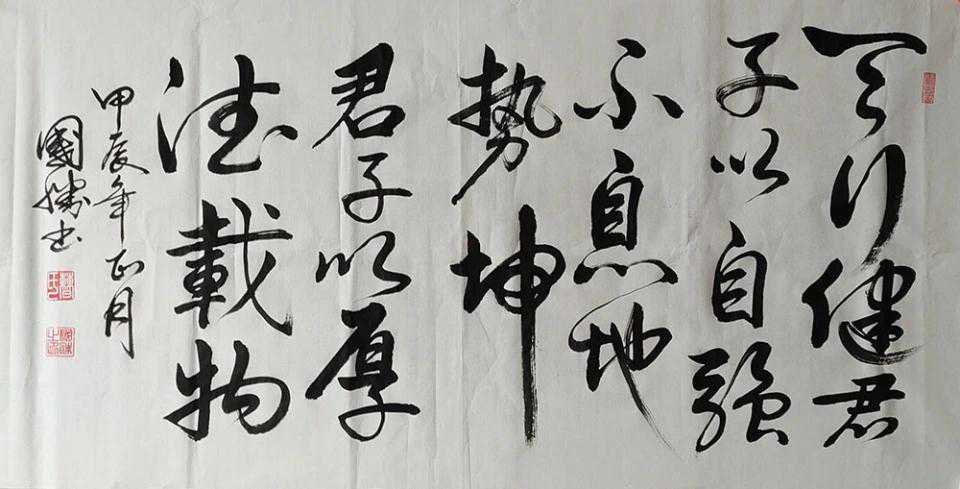 天行健君
子以自强
不息地
势坤
君子以厚
德載物
甲辰年正月
國勝书